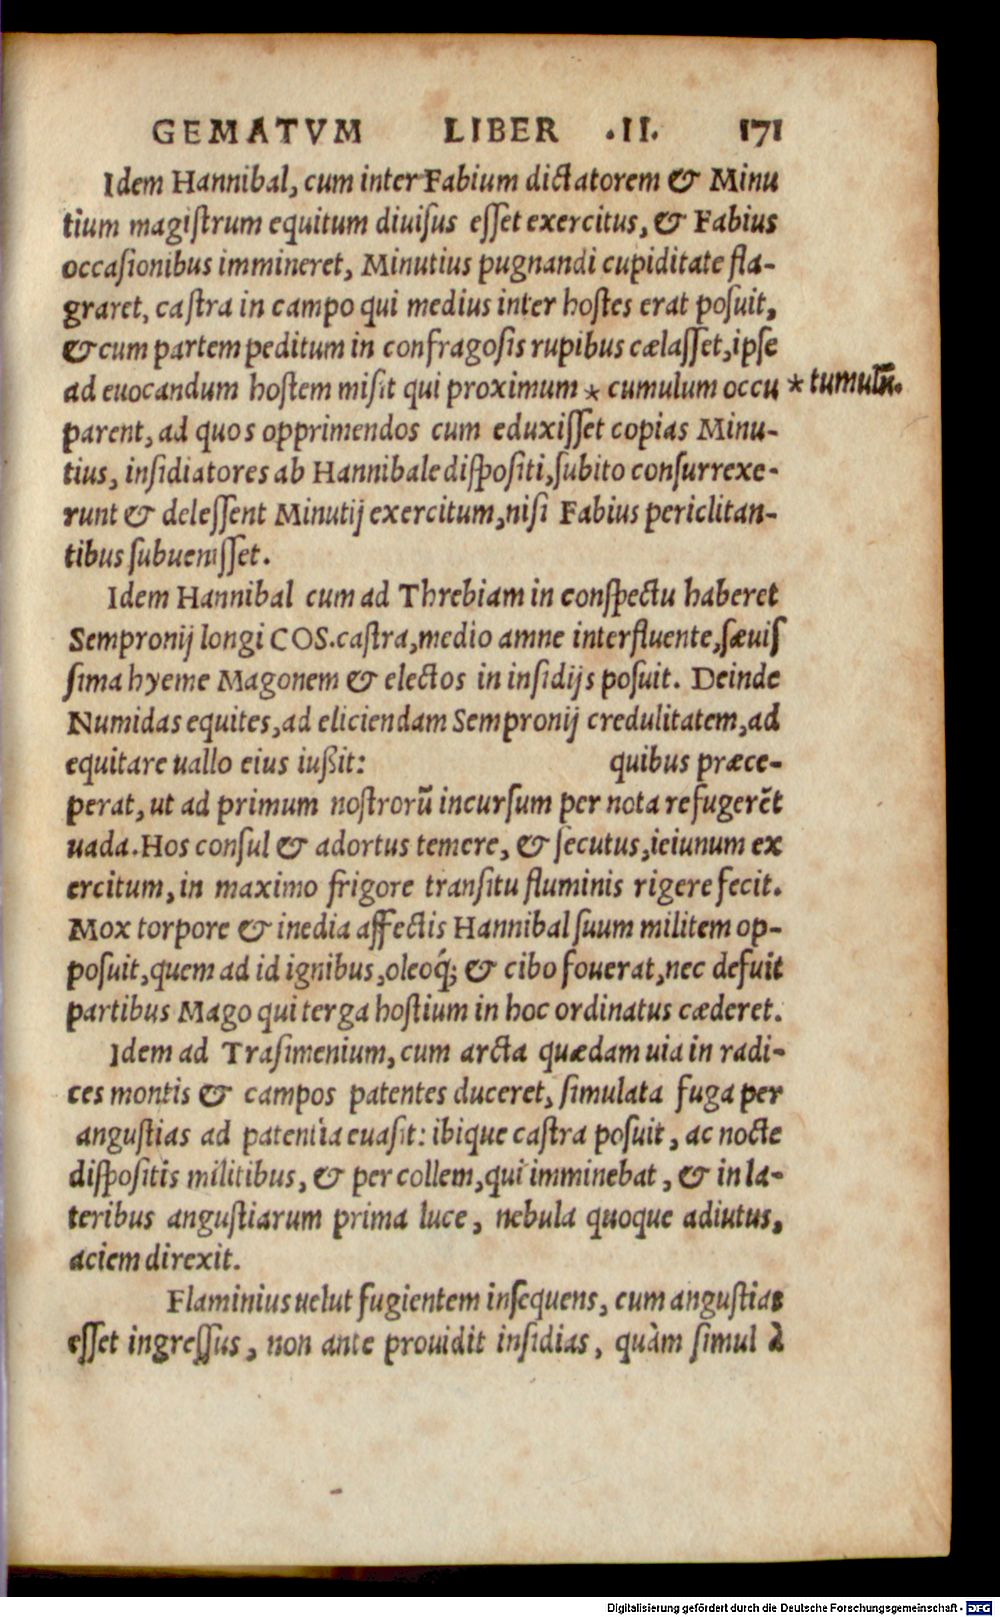 GEMATVM LIBER .II. 171
Idem Hannibal, cum inter Fabium dictatorem & Minu
tium magiſtrum equitum diuiſus eſſet exercitus, & Fabius
occaſionibus immineret, Minutius pugnandi cupiditate fla-
graret, caſtra in campo qui medius inter hoſtes erat poſuit,
& cum partem peditum in confragoſis rupibus cælaſſet, ipſe
ad euocandum hoſtem miſit qui proximum * cumulum occu * tumulū.
parent, ad quos opprimendos cum eduxiſſet copias Minu-
tius, inſidiatores ab Hannibale diſpoſiti, ſubito conſurrexe-
runt & deleſſent Minutij exercitum, niſi Fabius periclitan-
tibus ſubueniſſet.
Idem Hannibal cum ad Threbiam in conſpectu haberet
Sempronij longi COS. caſtra, medio amne interfluente, ſæuiſ
ſima hyeme Magonem & electos in inſidijs poſuit. Deinde
Numidas equites, ad eliciendam Sempronij credulitatem, ad
equitare uallo eius iußit: quibus præce-
perat, ut ad primum noſtrorū incurſum per nota refugerēt
uada. Hos conſul & adortus temere, & ſecutus, ieiunum ex
ercitum, in maximo frigore tranſitu fluminis rigere fecit.
Mox torpore & inedia affectis Hannibal ſuum militem op-
poſuit, quem ad id ignibus, oleoq́; & cibo fouerat, nec defuit
partibus Mago qui terga hoſtium in hoc ordinatus cæderet.
Idem ad Traſimenium, cum arcta quædam uia in radi-
ces montis & campos patentes duceret, ſimulata fuga per
anguſtias ad patentia euaſit: ibique caſtra poſuit, ac nocte
diſpoſitis militibus, & per collem, qui imminebat, & in la-
teribus anguſtiarum prima luce, nebula quoque adiutus,
aciem direxit.
Flaminius uelut fugientem inſequens, cum anguſtias
eſſet ingreſſus, non ante prouidit inſidias, quàm ſimul à
Digitalisierung gefördert durch die Deutsche Forschungsgemeinschaft - DFG